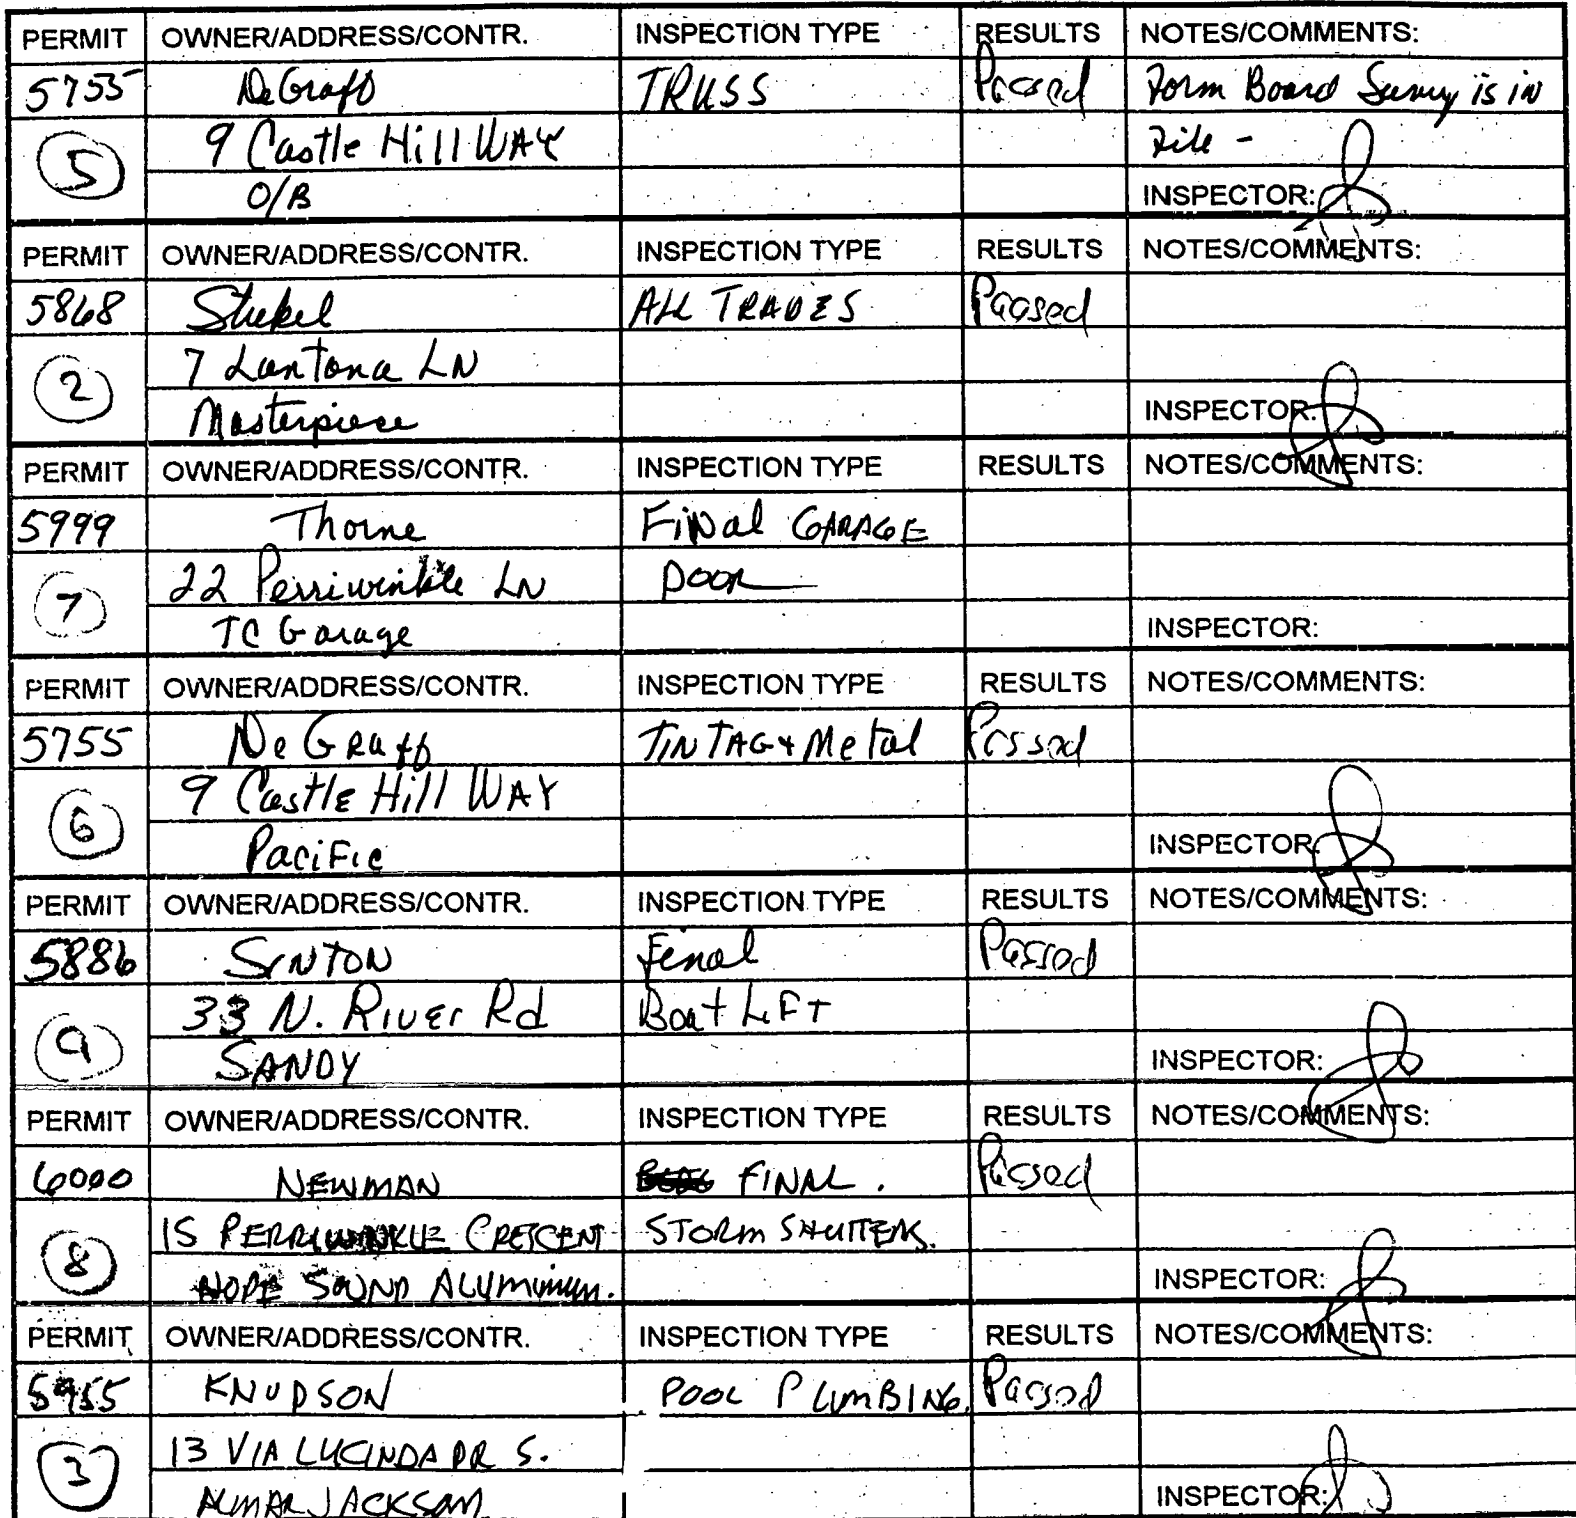 PERMIT OWNER/ADDRESS/CONTR. INSPECTION TYPE RESULTS NOTES/COMMENTS:
5755 DeGraff TRUSS Passed Form Board Survey is in
5 9 Castle Hill WAY File -
O/B INSPECTOR:
PERMIT OWNER/ADDRESS/CONTR. INSPECTION TYPE RESULTS NOTES/COMMENTS:
5868 Stukel ALL TRADES Passed
2 7 Lantona LN
Masterpiece INSPECTOR:
PERMIT OWNER/ADDRESS/CONTR. INSPECTION TYPE RESULTS NOTES/COMMENTS:
5999 Thorne FiNal GARAGE
7 22 Perriwinkle LN DOOR
TC Garage INSPECTOR:
PERMIT OWNER/ADDRESS/CONTR. INSPECTION TYPE RESULTS NOTES/COMMENTS:
5755 DeGraff TIN TAG & Metal Passed
6 9 Castle Hill WAY
PaciFic INSPECTOR:
PERMIT OWNER/ADDRESS/CONTR. INSPECTION TYPE RESULTS NOTES/COMMENTS:
5886 SINTON Final Passed
9 33 N. River Rd Boat LiFT
SANDY INSPECTOR:
PERMIT OWNER/ADDRESS/CONTR. INSPECTION TYPE RESULTS NOTES/COMMENTS:
6000 NEWMAN FINAL. Passed
8 15 PERRIWINKLE CRESCENT STORM SHUTTERS.
HOBE SOUND ALUMINUM. INSPECTOR:
PERMIT OWNER/ADDRESS/CONTR. INSPECTION TYPE RESULTS NOTES/COMMENTS:
5955 KNUDSON POOL PLUMBING. Passed
3 13 VIA LUCINDA DR S.
ALMAR JACKSON INSPECTOR: